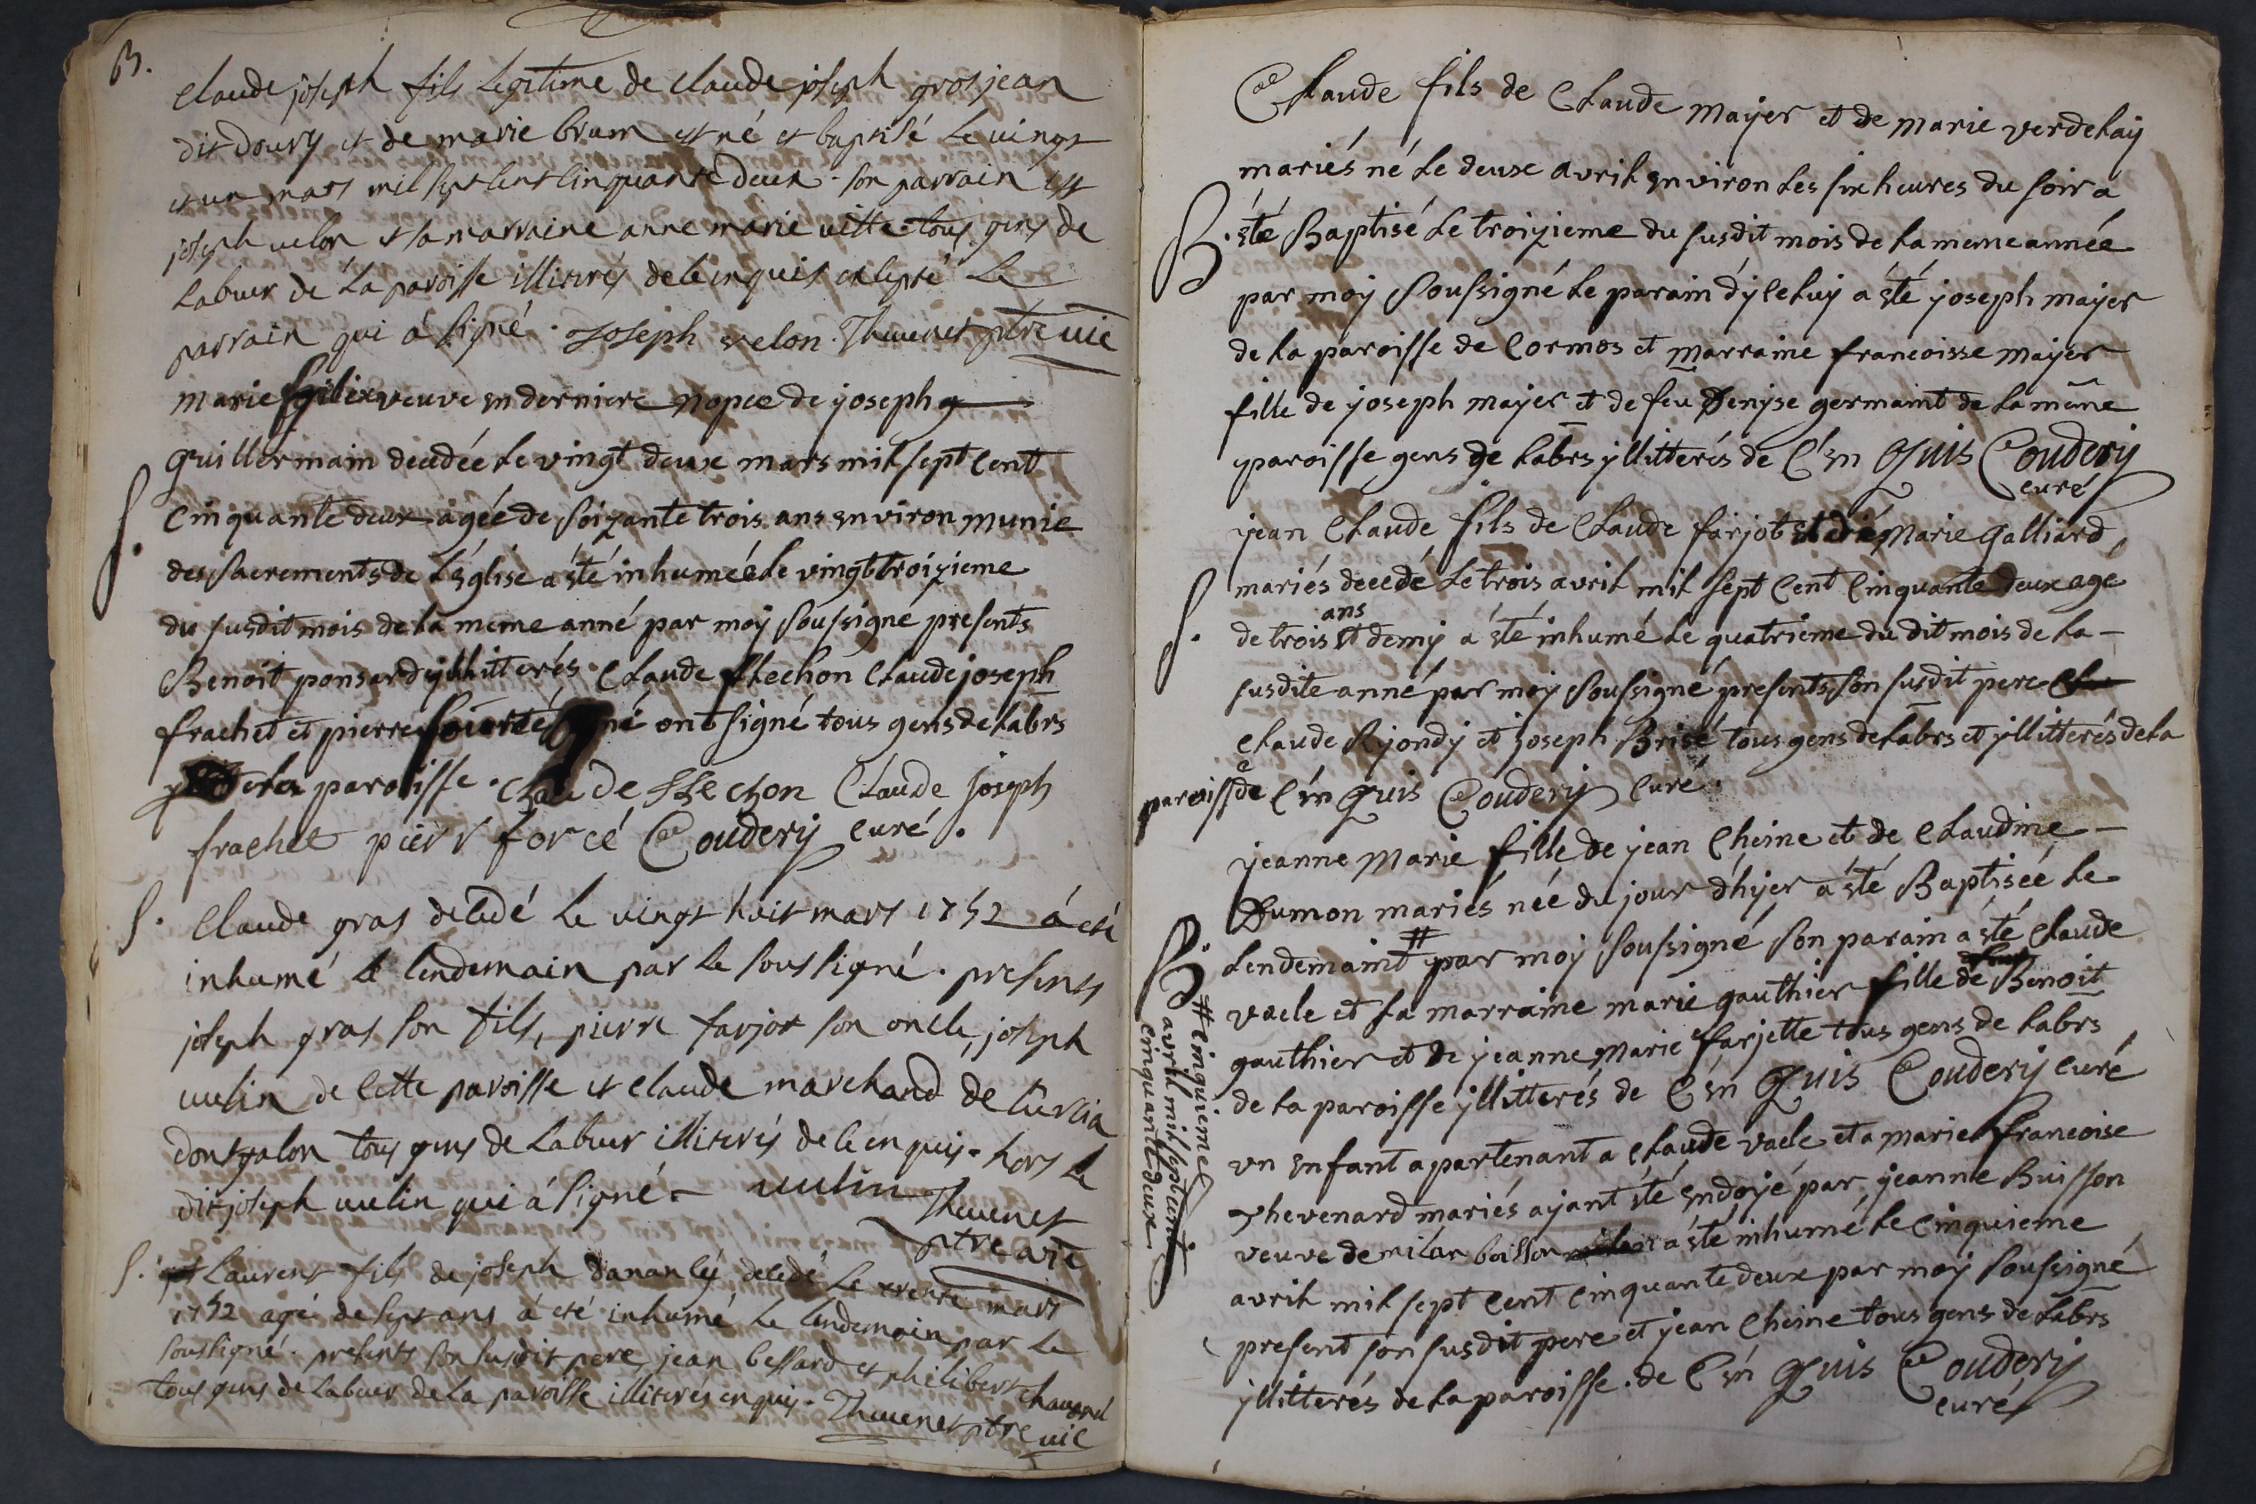 B.
Claude joseph fils legitime de claude joseph grosjean
dit doury et de marie brum est né et baptisé le vingt
et un mars mil sept cent cinquante deux. son parrain est
joseph velon et sa marraine anne marie vitte tous gens de
labeur de la paroisse illiterés de ce enquis excepté le
parrain qui á signé. Joseph velon. Thevenet ptre vic
marie veuve en derniere nopce de joseph g
guillermain decedée le vingt deux mars mil sept cent
S.
cinquante deux agée de soizante trois ans environ munie
des sacrements de l'églize a été inhumeé le vingt troizieme
du susdit mois de la meme anné par moy soussigné presents
Benoit ponsard yllitterés. Claude flechon Claude joseph
frachet et pierre ont signé tous gens de labrs
de la paroisse. claude flechon Claude joseph
frachet pierr forcé Coudery curé.
S.
Claude gras decedé le vingt huit mars 1752 á eté
inhumé le lendemain par le soussigné. presents
joseph gras son fils, pierre farjot son oncle, joseph
vulin de cette paroisse et claude marchand de curcia
dongalon tous gens de labeur illiterés de ce enquis. hors le
dit joseph vulin qui á signé. vulin Thevenet
ptre vic
S.
Laurent fils de joseph dananley decedé le trente mars
1752 agé de sept ans á eté inhumé le lendemain par le
soussigné. presents son susdit pere, jean bessard et philibert chavand
tous gens de labeur de la paroisse illiterés enquis. Thevenet ptre vic
Claude fils de Claude mayer et de marie verdelay
mariés né le deux avril environ les six heures du soir a
B.
été Baptisé le troizieme du susdit mois de la meme année
par moy soussigné le parain d'yceluy a été joseph mayer
de la paroisse de Cormos et marraine francoisse mayer
fille de joseph mayer et de feu Denyse germaint de la même
paroisse gens de labrs yllitterés de C'en Quis Coudery
curé
jean Claude fils de Claude farjot et de Marie galliard
mariés decedé le trois avril mil sept Cent Cinquante deux age
ans
S.
de trois et demy a été inhumé le quatrieme du dit mois de la
susdite anné par moy soussigné presents son susdit pere
claude Ryondy et joseph Brisé tous gens de labrs et yllitterés de la
paroisse de C'en Quis Coudery Curé.
jeanne Marie fille de jean Cheine et de Claudine
Dumon mariés née du jour d'hyer a été Baptiséé le
B.
lendemaint # par moy soussigné son parain a été Claude
vacle et sa marraine marie gauthier fille de Benoit
gauthier et de jeanne Marie farjette tous gens de labrs
de la paroisse yllitterés de C'en Quis Coudery curé
# Cinquieme
avril mil sept cent
cinquante deux
un enfant apartenant a Claude vacle et a marie francoise
thevenard mariés ayant été endoyé par jeanne Buisson
veuve de milan boisson a été inhumé le Cinquieme
avril mil sept Cent Cinquante deux par moy soussigné
present son susdit pere et jean Cheine tous gens de labrs
yllitterés de la paroisse. de C'en Quis Coudery
curé